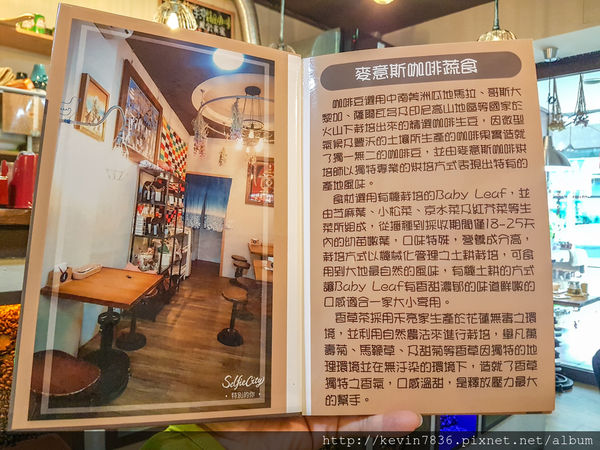 SelfieCity
·特別的你·
麥意斯咖啡蔬食
咖啡豆選用中南美洲瓜地馬拉、哥斯大
黎加、薩爾瓦多及印尼高山地區等國家於
火山下栽培出來的精選咖啡生豆，因微型
氣候及豐沃的土壤所生產的咖啡果實造就
了獨一無二的咖啡豆，並由麥意斯咖啡烘
培師以獨特專業的烘培方式表現出特有的
產地風味。
食材選用有機栽培的Baby Leaf，並
由芝麻葉、小松菜、京水菜及紅芥菜等生
菜所組成，從播種到採收期間僅18-25天
內的幼苗嫩葉，口味特殊，營養成分高，
栽培方式以機械化管理之土耕栽培，可食
用到大地最自然的風味，有機土耕的方式
讓Baby Leaf有香甜濃郁的味道鮮嫩的
口感適合一家大小享用。
香草茶採用禾亮家生產於花蓮無毒之環
境，並利用自然農法來進行栽培，舉凡萬
壽菊、馬鞭草、及甜菊等香草因獨特的地
理環境並在無汙染的環境下，造就了香草
獨特之香氣，口感溫甜，是釋放壓力最大
的幫手。
http://kevin7836.pixnet.net/album